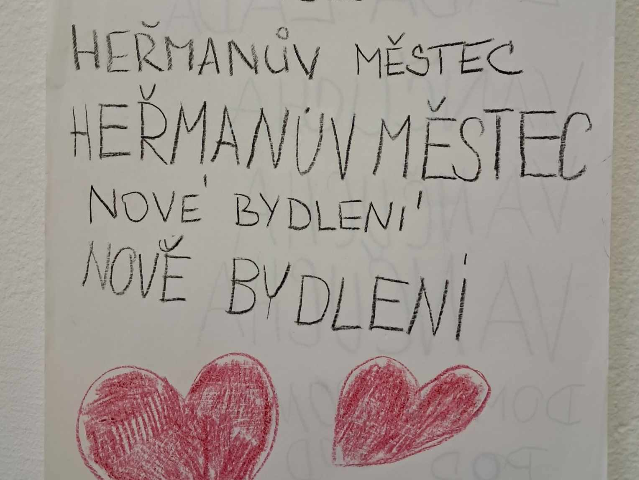 HEŘMANŮV MĚSTEC
HEŘMANÚV MĚSTEC
NOVÉ BYDLENÍ
NOVĚ BYDLENÍ